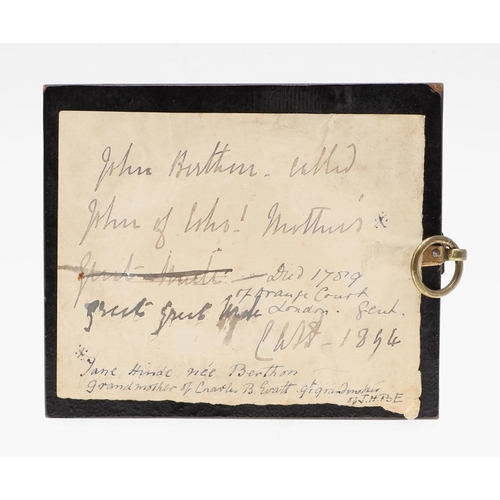 John Berthon - called
John of Mother's *
Great Uncle - Died 1789
of Orange Court
great great London. Gent.
1894
* Jane Hinde née Berthon
Grandmother of Charles B. Evatt. Gt grandmother
of J.H.